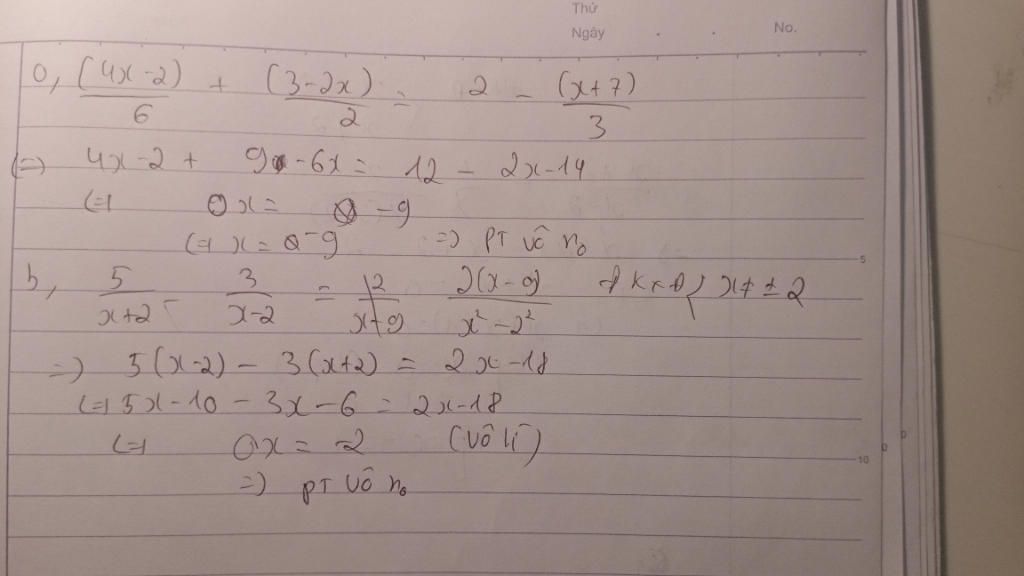 Thứ
Ngày . . No.
a, (4x-2)/6 + (3-2x)/2 = 2 - (x+7)/3
(=) 4x-2 + 9 -6x = 12 - 2x-14
(=) 0x = -9
(=) x = -9 => PT vô n₀
5
b, 5/(x+2) - 3/(x-2) = 2(x-9)/(x²-2²) x ≠ ± 2
=) 5(x-2) - 3(x+2) = 2x-18
(=) 5x-10 - 3x-6 = 2x-18
(=) 0x = -2 (vô lí)
10
=) PT vô n₀